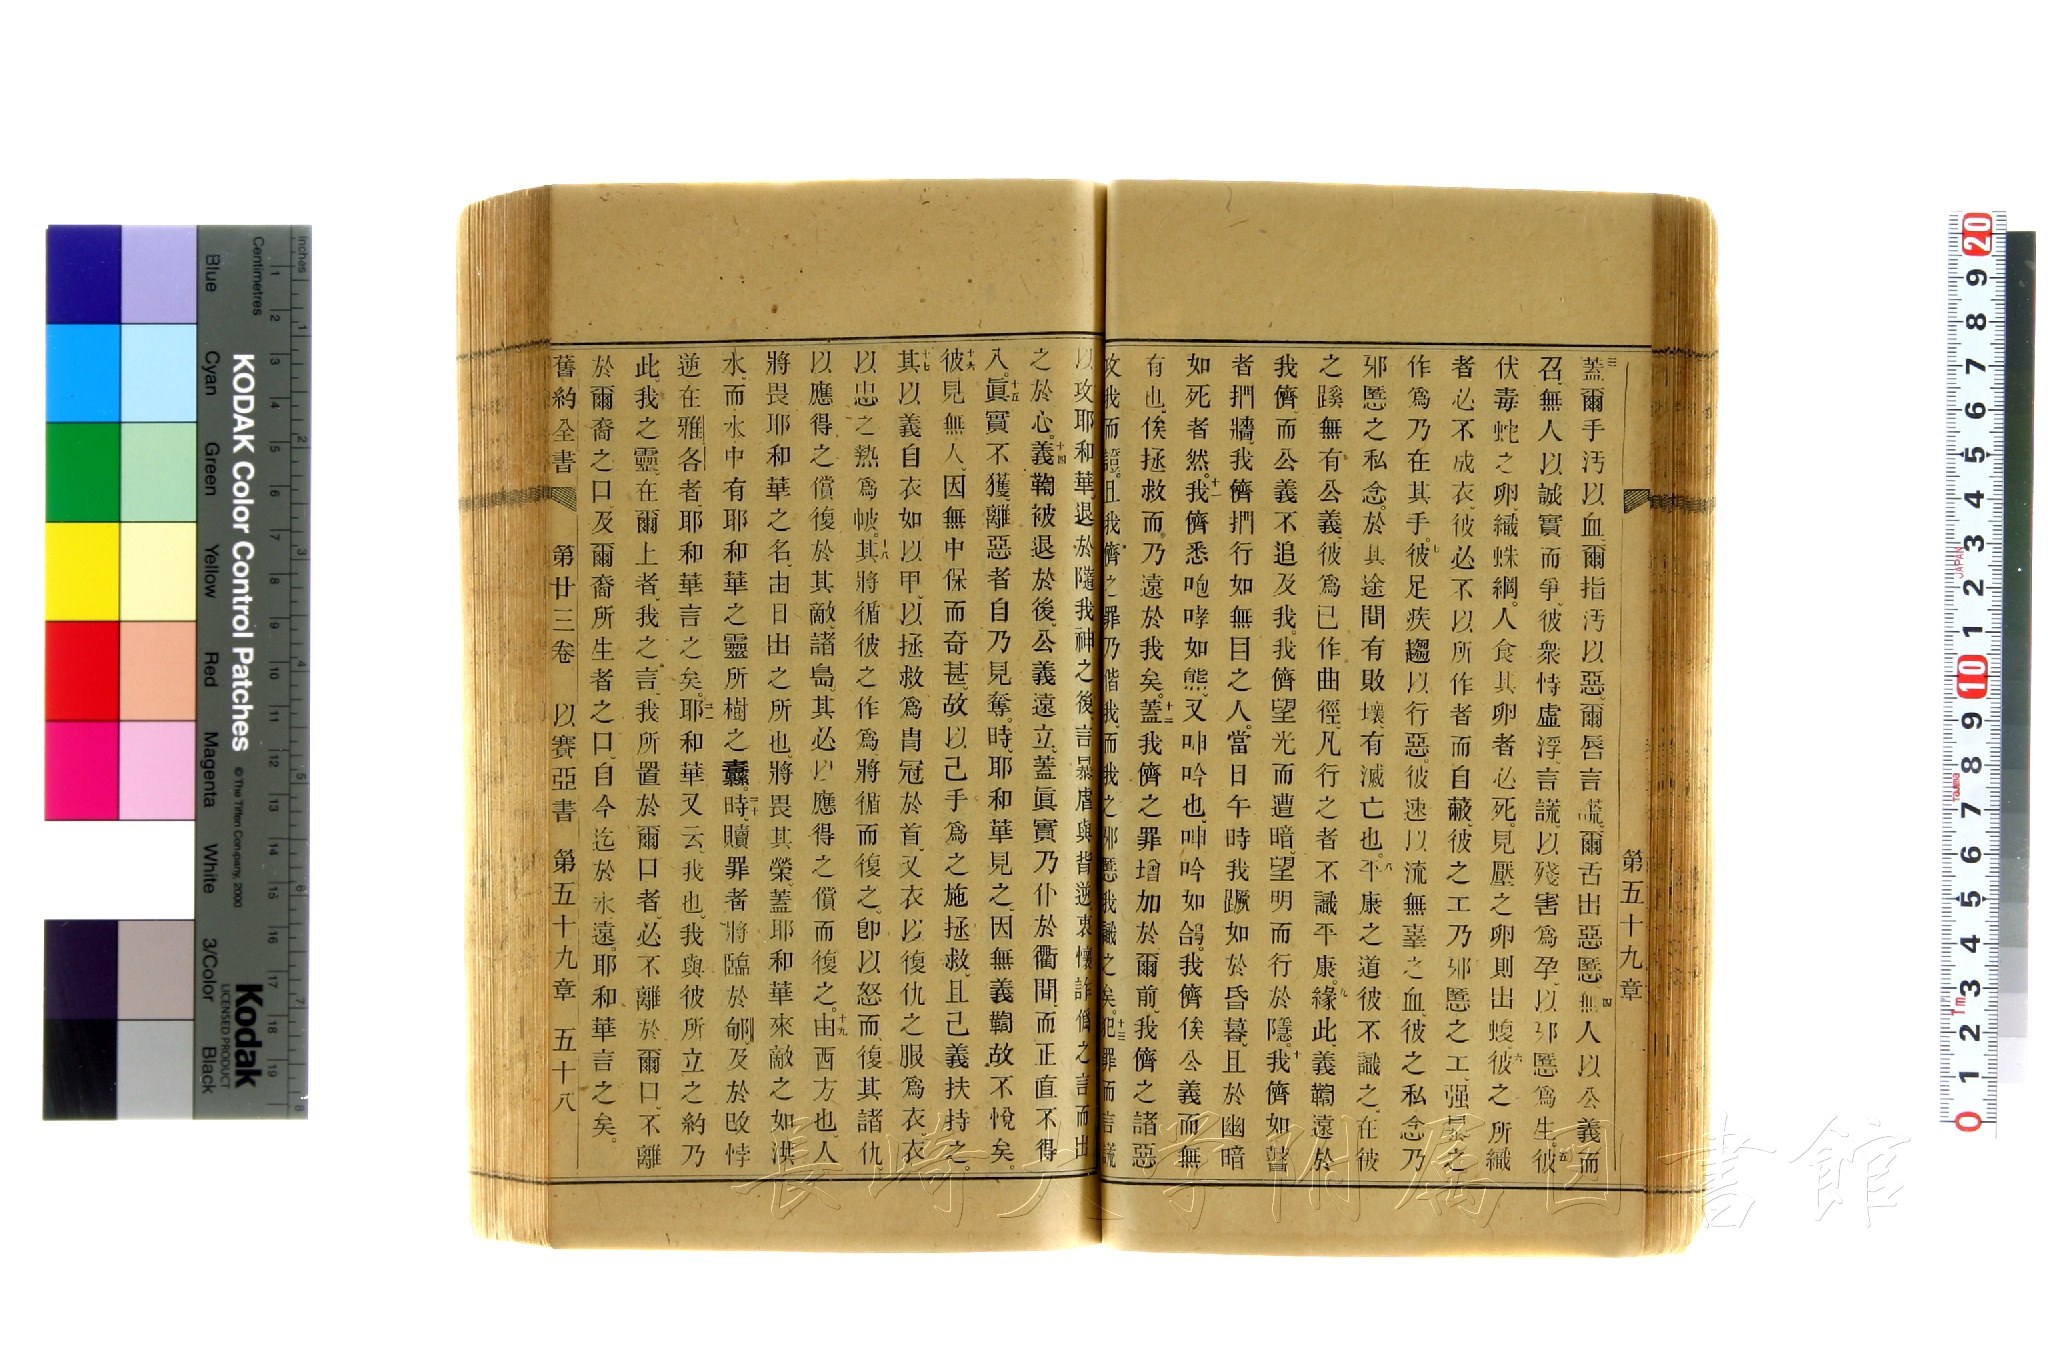 第五十九章
三蓋爾手汚以血、爾指汚以惡、爾唇言謊、爾舌出惡慝。四無人以公義而
召、無人以誠實而爭、彼衆恃虛浮、言謊、以殘害爲孕、以邪慝爲生。五彼
伏毒蛇之卵、織蛛網。人食其卵者必死。見壓之卵則出蝮。六彼之所織
者必不成衣、彼必不以所作者而自蔽、彼之工乃邪慝之工、强暴之
作爲乃在其手。七彼足疾趨以行惡、彼速以流無辜之血、彼之私念乃
邪慝之私念。於其途間有敗壞有滅亡也。八平康之道彼不識之、在彼
之蹊無有公義、彼爲已作曲徑、凡行之者不識平康。九緣此、義鞫遠於
我儕、而公義不追及我。我儕望光而遭暗、望明而行於隱。十我儕如瞽
者捫牆、我儕捫行如無目之人。當日午時我蹶如於昏暮、且於幽暗
如死者然。十一我儕悉咆哮如熊、又呻吟也、呻吟如鴿。我儕俟公義而無
有也、俟拯救而、乃遠於我矣。十二蓋我儕之罪增加於爾前、我儕之諸惡
攻我而證。且我儕之罪乃偕我、而我之邪慝我識之矣。十三犯罪而言謊
以攻耶和華、退於隨我神之後、言暴虐與背逆、衷懷詐僞之言而出
之於心。十四義鞫被退於後、公義遠立、蓋眞實乃仆於衢間、而正直不得
入。十五眞實不獲、離惡者自乃見奪。時、耶和華見之、因無義鞫故不悅矣。
十六彼見無人、因無中保而奇甚、故以己手爲之施拯救、且己義扶持之。
十七其以義自衣如以甲、以拯救爲冑冠於首、又衣以復仇之服爲衣、衣
以忠之熱爲帔。十八其將循彼之作爲將循而復之。卽以怒而、復其諸仇、
以應得之償復於其敵、諸島、其必以應得之償而復之。十九由西方也、人
將畏耶和華之名、由日出之所也、將畏其榮、蓋耶和華來敵之如洪
水、而水中有耶和華之靈所樹之纛。二十時、贖罪者將臨於郇、及於改悖
逆在雅各者、耶和華言之矣。二一耶和華又云、我也、我與彼所立之約乃
此、我之靈、在爾上者、我之言、我所置於爾口者、必不離於爾口、不離
於爾裔之口、及爾裔所生者之口、自今迄於永遠。耶和華言之矣。
舊約全書 第廿三卷 以賽亞書 第五十九章 五十八
KODAK Color Control Patches
© The Tiffen Company, 2000
Kodak
LICENSED PRODUCT
Inches
Centimetres
Blue Cyan Green Yellow Red Magenta White 3/Color Black
長崎大学附属図書館
JAPAN